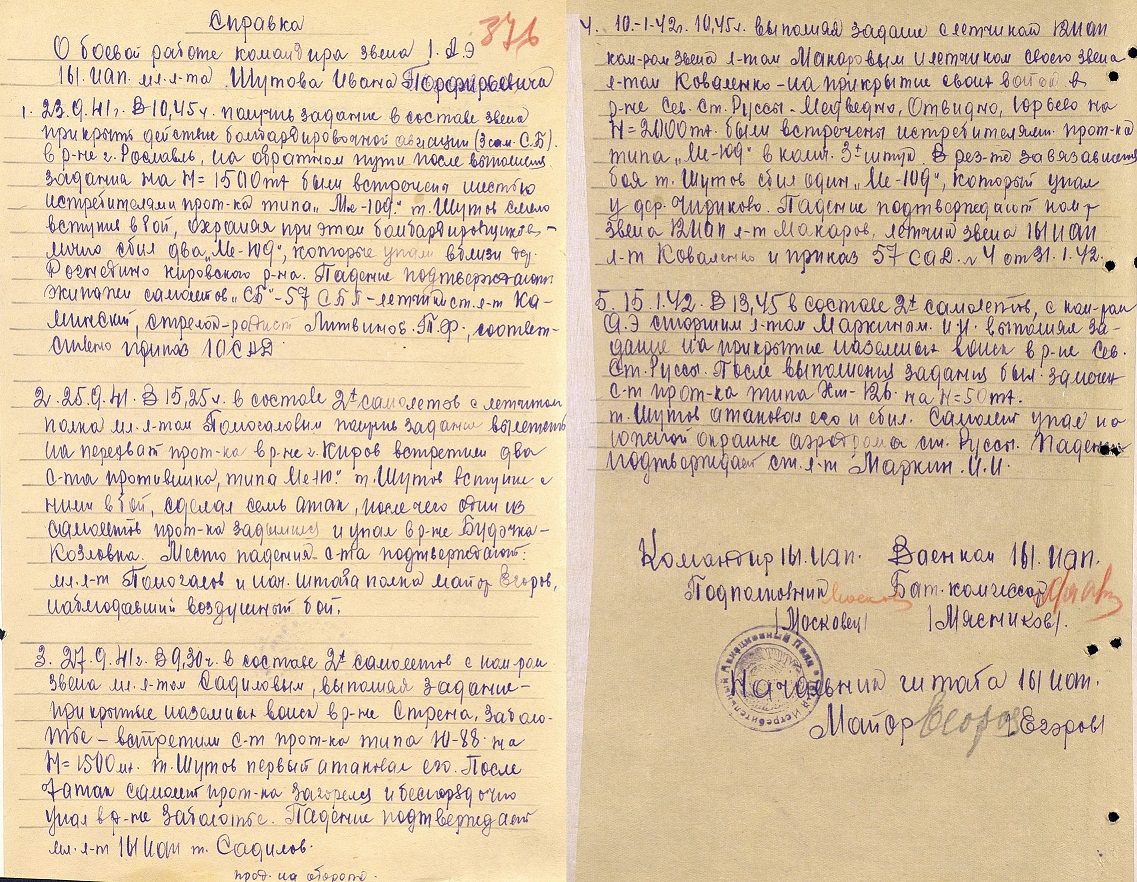 Справка
376
О боевой работе командира звена 1. АЭ
161 иап. мл. л-та Шутова Ивана Порфирьевича
1. 23.9.41г. В 10,45ч. получив задание в составе звена
прикрыть действие бомбардировочной авиации (3 сам. СБ).
в р-не г. Рославль, на обратном пути после выполнения
задания на Н=1500мт были встречены шестью
истребителями прот-ка типа „Ме-109." т. Шутов смело
вступив в бой, охраняя при этом бомбардировщиков-
лично сбил два „Ме-109", которые упали вблизи дер.
Кировского р-на. Падение подтверждают
экипажи самолетов „СБ"-57 СБП-летчик ст. л-т Ка-
минский, стрелок-радист Литвинов. Т.Ф., соответ-
ственно приказ 10 САД
2. 25.9.41. В 15,25ч. в составе 2х самолетов с летчиком
полка мл. л-том Помогаловым получив задание вылететь
на перехват прот-ка в р-не г. Киров встретили два
с-та противника, типа Ме-110. т. Шутов вступив с
ними в бой, сделал семь атак, после чего один из
самолетов прот-ка задымил и упал в р-не Будочка-
Козловка. Место падения с-та подтверждают:
мл. л-т Помогалов и нач. штаба полка майор Егоров,
наблюдавший воздушный бой.
3. 27.9.41г. В 9,30ч. в составе 2х самолетов с ком-ром
звена мл. л-том Садиловым, выполняя задание-
прикрытие наземных войск в р-не Стрена, Заболо-
тье – встретили с-т прот-ка типа Ю-88 на
Н=1500м. т. Шутов первый атаковал его. После
7 атак самолет прот-ка загорелся и беспорядочно
упал в р-не Заболотье. Падение подтверждает
мл. л-т 161 иап т. Садилов.
прод. на обороте.
4. 10.-1-42г. 10,45ч. выполняя задание с летчиком 12 ИАП
ком-ром звена л-том Макаровым и летчиком своего звена
л-том Коваленко – на прикрытие своих войск в
р-не Сев. Ст. Руссы-Медведно, Отвидно, Юрьево на
Н=2000мт. были встречены истребителями прот-ка
типа „Ме-109" в колич. 3х штук. В рез-те завязавшегося
боя т. Шутов сбил один „Ме-109", который упал
у дер. Чириково. Падение подтверждают ком-р
звена 12 ИАП л-т Макаров, летчик звена 161 ИАП
л-т Коваленко и приказ 57 САД. №4 от 31.1.42.
5. 15.1.42. В 13,45 в составе 2х самолетов, с ком-ром
АЭ старшим л-том Маркиным. И. И. выполнял за-
дание на прикрытие наземных войск в р-не Сев.
Ст. Руссы. После выполнения задания был замечен
с-т прот-ка типа Хш-126 на Н=50мт.
т. Шутов атаковал его и сбил. Самолет упал на
южной окраине аэродрома ст. Руссы. Падение
подтверждает ст. л-т Маркин. И. И.
Командир 161. иап. Военком 161. иап.
Подполковник Бат. комиссар
/Московец/ /Мясников/.
Начальник штаба 161 иап.
Майор Егоров /Егоров/